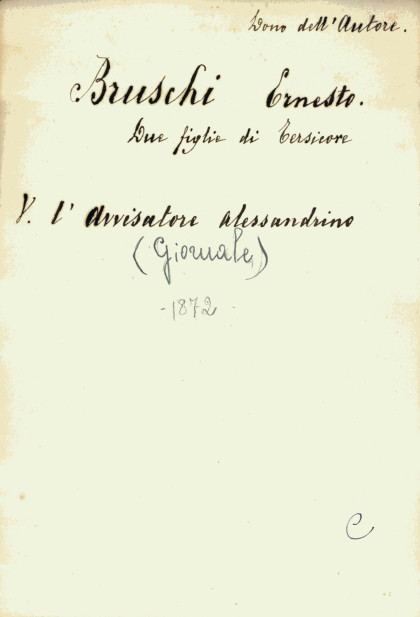 Dono dell'Autore.
Bruschi Ernesto.
Due figlie di Tersicore
V. l'Avvisatore Alessandrino
(Giornale)
-1872-
C